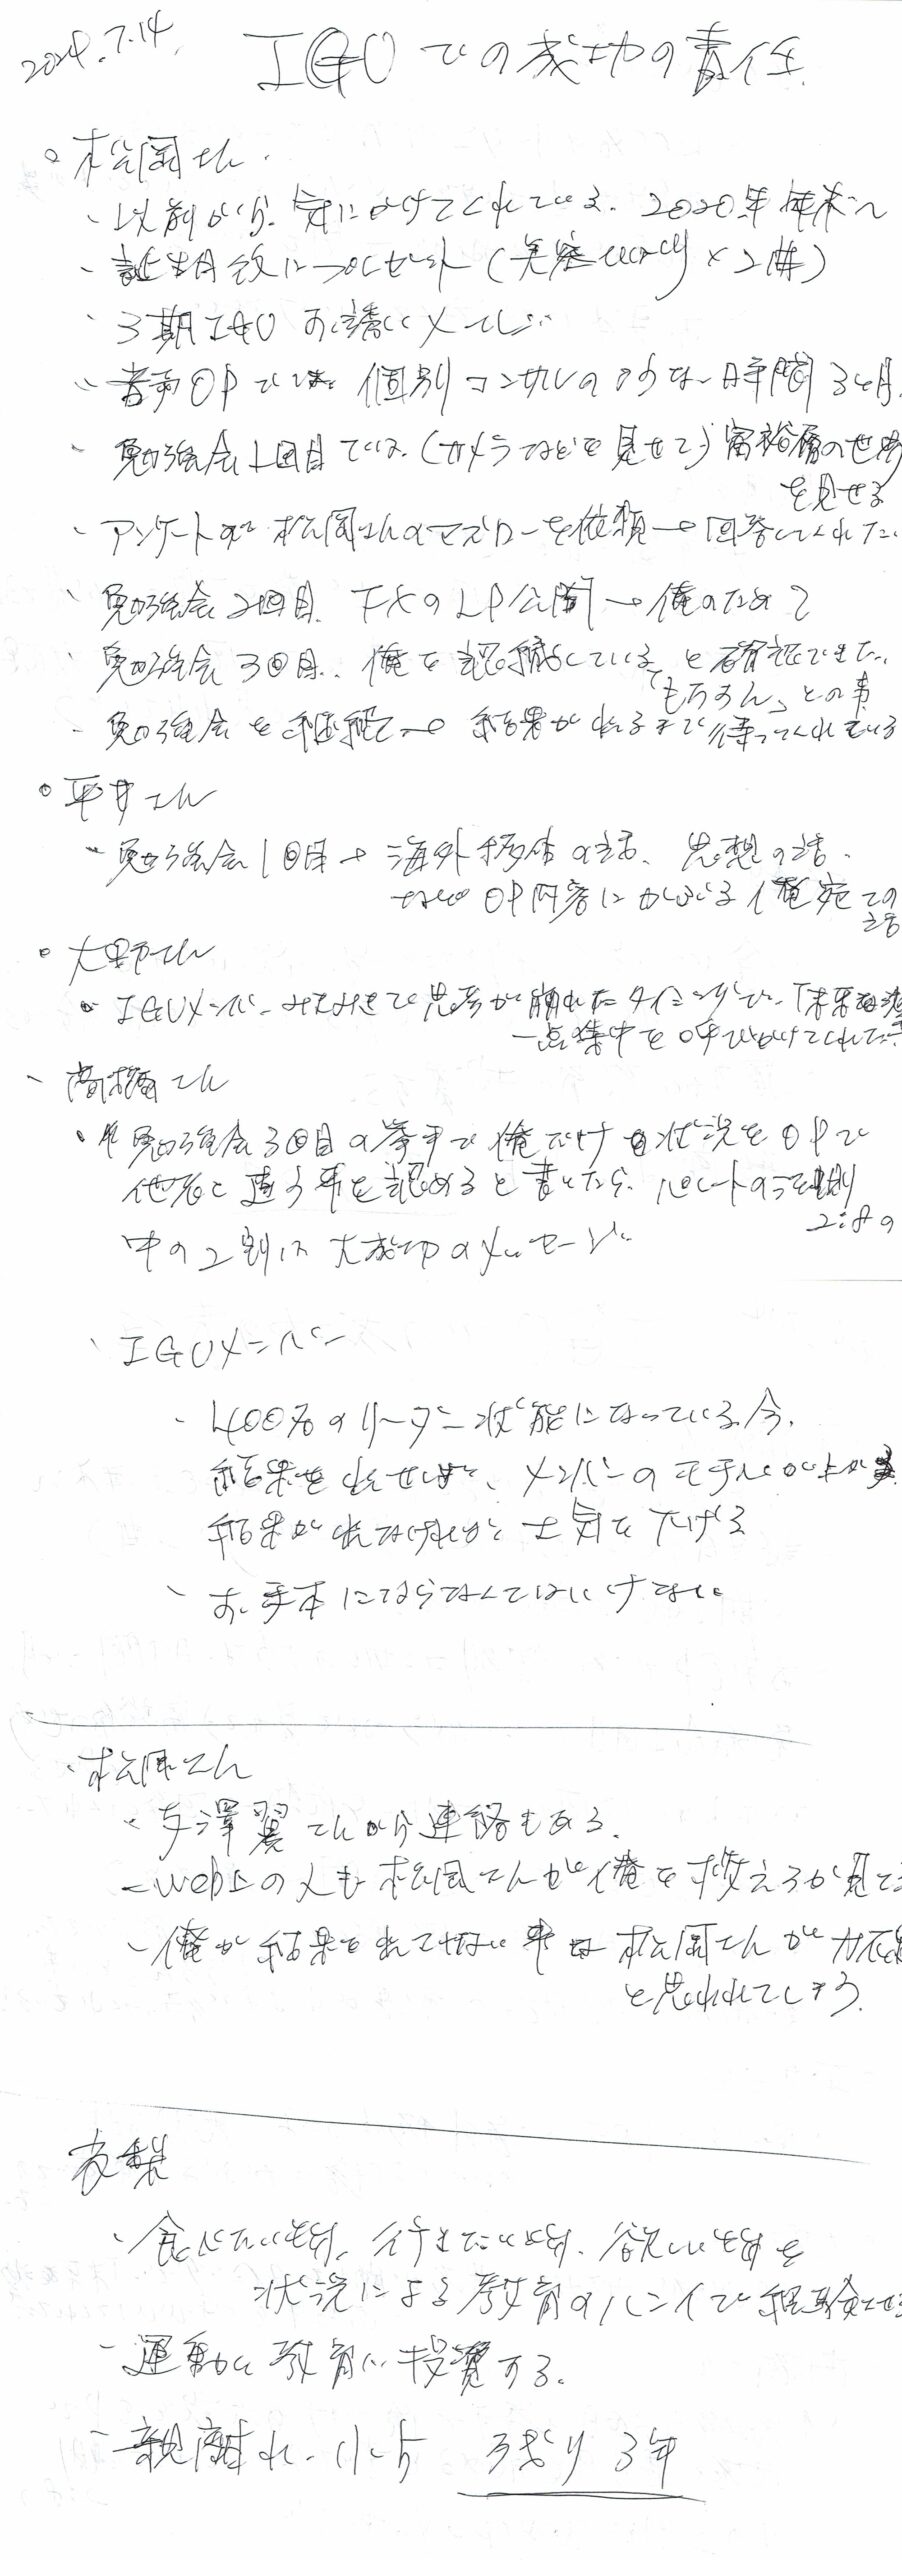 2024.7.14.
IGUでの成功の責任
松岡さん
以前から気にかけてくれている. 2020年
誕生月 プレゼント (美容 ×2冊)
3期IGU お誘いメール
音声OPでは 個別コンサルのような時間 3ヶ月
勉強会1回目では (カメラなどを見せて) 富裕層の世界
を見せる
アンケートで 松岡さんのマズローを依頼→回答してくれた
勉強会2回目. FXのLP公開→俺のため?
勉強会3回目. 俺を認識している と確認できた.
「もちろん」との事
勉強会を継続→ 結果が出るまで待ってくれている
平井さん
勉強会1回目→海外移住の話、思想の話.
など OP内容にかぶる 俺宛ての
話
大野さん
IGUメンバー で思考が崩れたタイミングで、「未来
一点集中を呼びかけてくれた
高橋さん
勉強会3回目の挙手で俺だけ 状況をOPで
他者と違う事を認めると書いたら. パレートの法則
2:8の
中の2割は大成功のメッセージ
IGUメンバー
400名のリーダー状態になっている今.
結果を出せば、メンバーのモチベが上がる
結果が出なければ 士気を下げる
お手本にならなくてはいけない
松岡さん
与澤翼さんから連絡もある.
web上の人も 松岡さんが俺を教えるか見てる
俺が結果を出てない事は 松岡さんが力不足
と思われてしまう.
友梨
食べたいもの. 行きたいもの. 欲しいものを
状況による教育のハンイで経験させる
運動に 教育に投資する.
親離れ. 小5 残り 3年